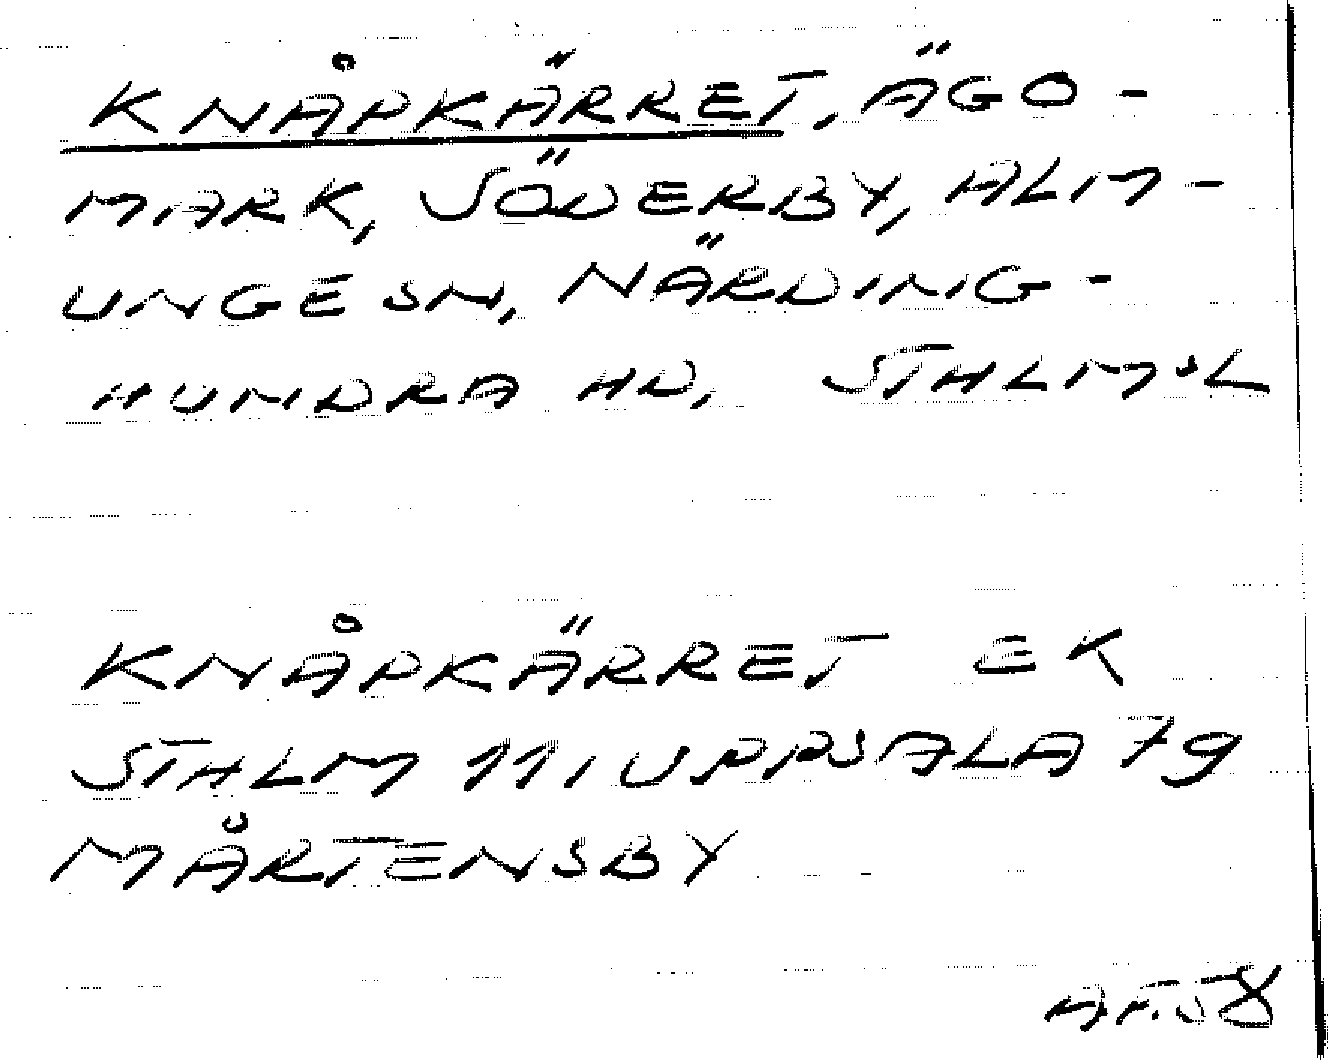 KNÅPKÄRRET, ÄGO-
MARK, SÖDERBY, ALM-
UNGE SN, NÄRDING-
HUNDRA HD, STHLMS L
KNÅPKÄRRET EK
STHLM 111 UPPSALA 79
MÅRTENSBY
AF. 58